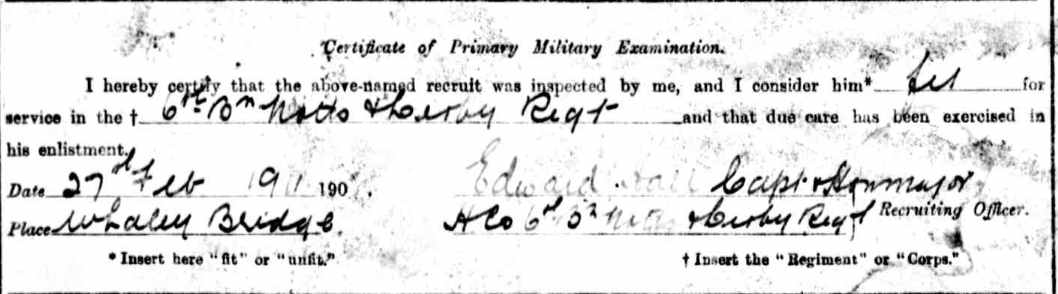 Certificate of Primary Military Examination.
I hereby certify that the above-named recruit was inspected by me, and I consider him* fit for
service in the † 6th Bn Notts & Derby Regt and that due care has been exercised in
his enlistment.
Date 27th Feb 191 190 . Edward Hall Capt & Hon Major
Place Whaley Bridge. H Co 6th Bn Notts & Derby Regt Recruiting Officer.
* Insert here "fit" or "unfit." † Insert the "Regiment" or "Corps."